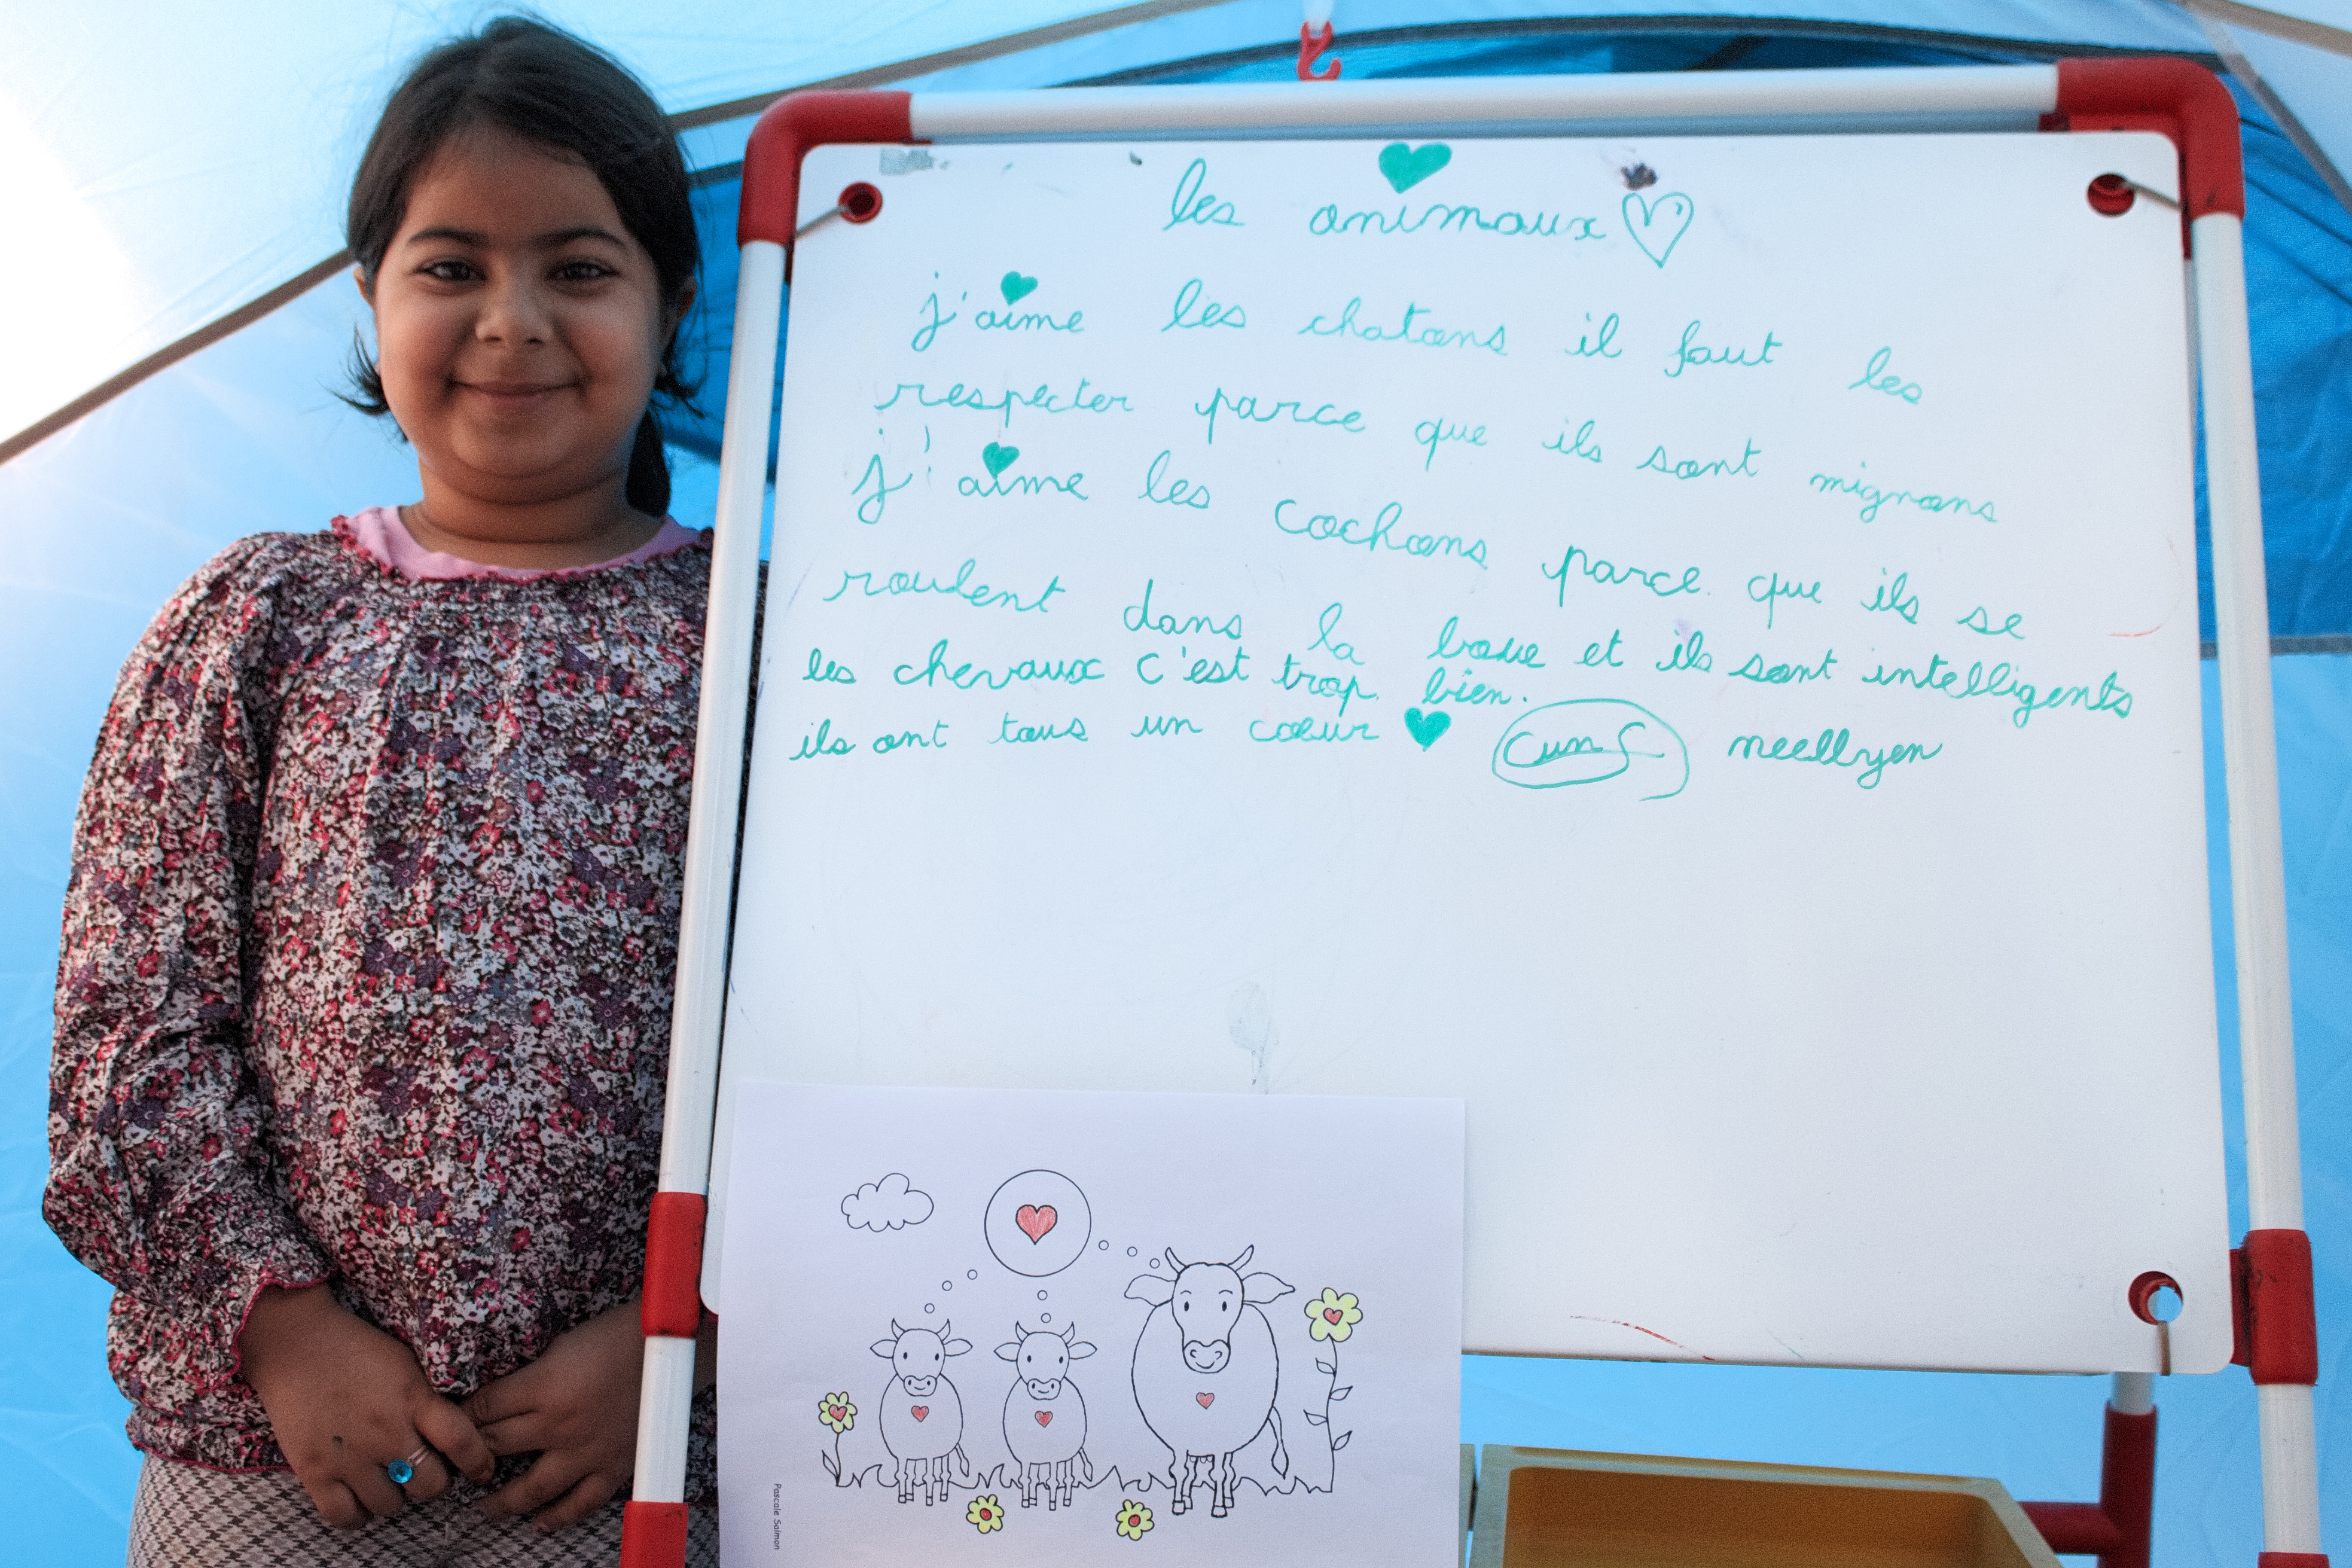 les animaux
j'aime les chatons il faut les
respecter parce que ils sont mignons
j'aime les cochons parce que ils se
roulent dans la boue et ils sont intelligents
les chevaux c'est trop bien.
ils ont tous un cœur neellyen
Pascale Salmon